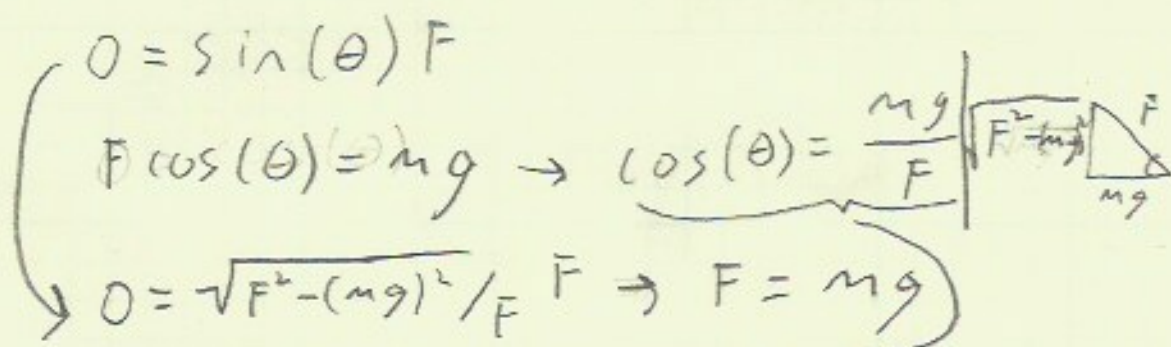 0 = sin(θ) F
F cos(θ) = mg → cos(θ) = mg/F | √F²-(mg)² F mg
0 = √F²-(mg)² /F F → F = mg